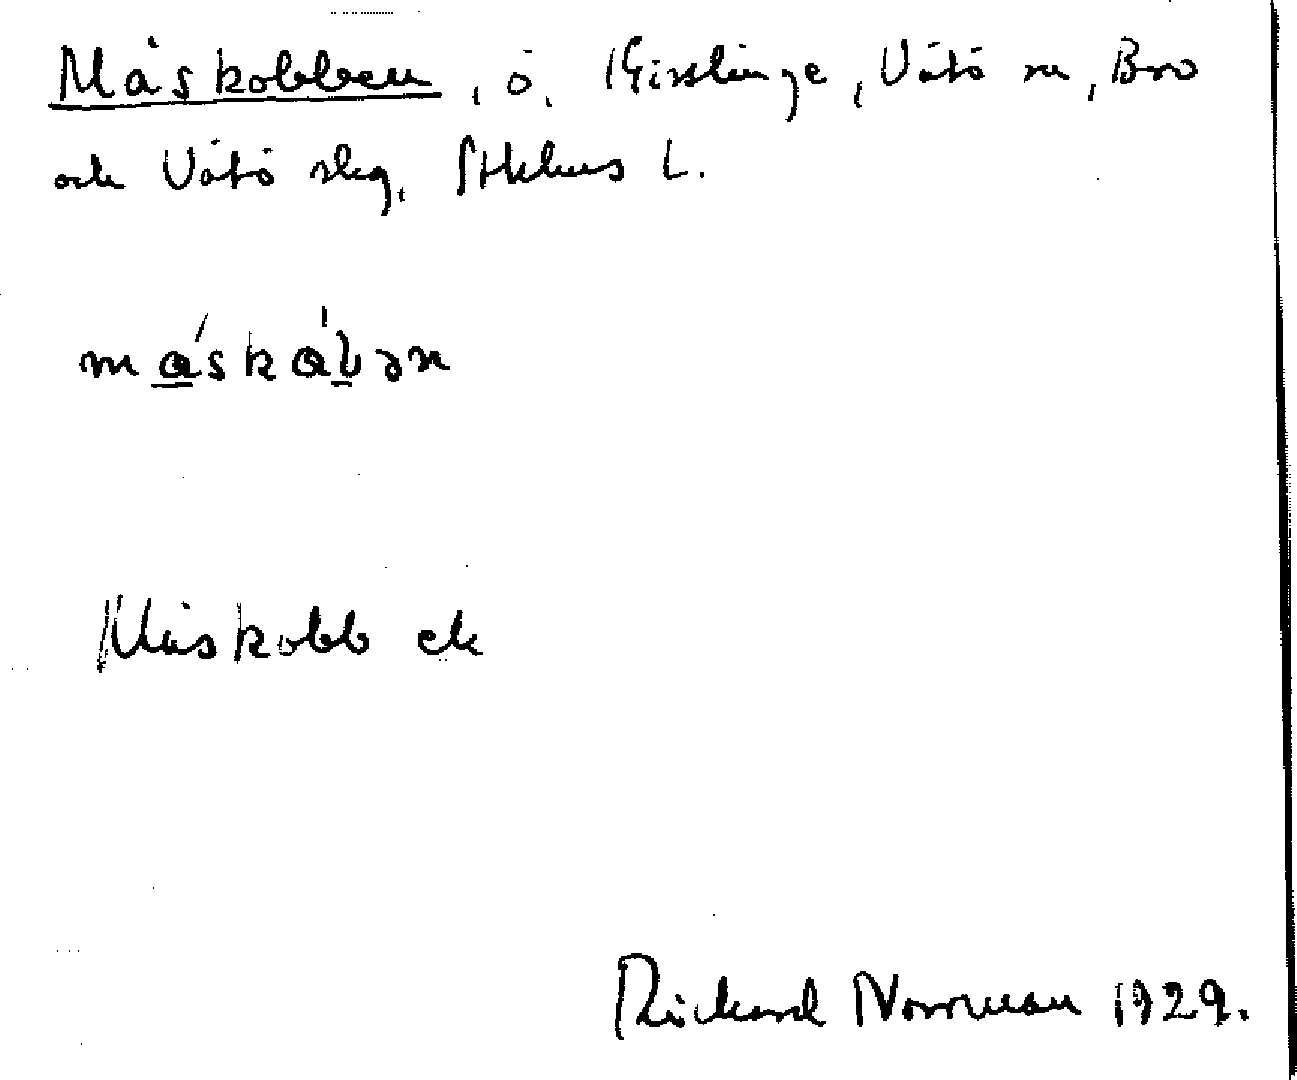 Måskobben, ö, Gisslinge, Vätö sn, Bro
och Vätö slg, Sthlms L.
måskåbən
Måskobb ek
Rickard Norrman 1929.